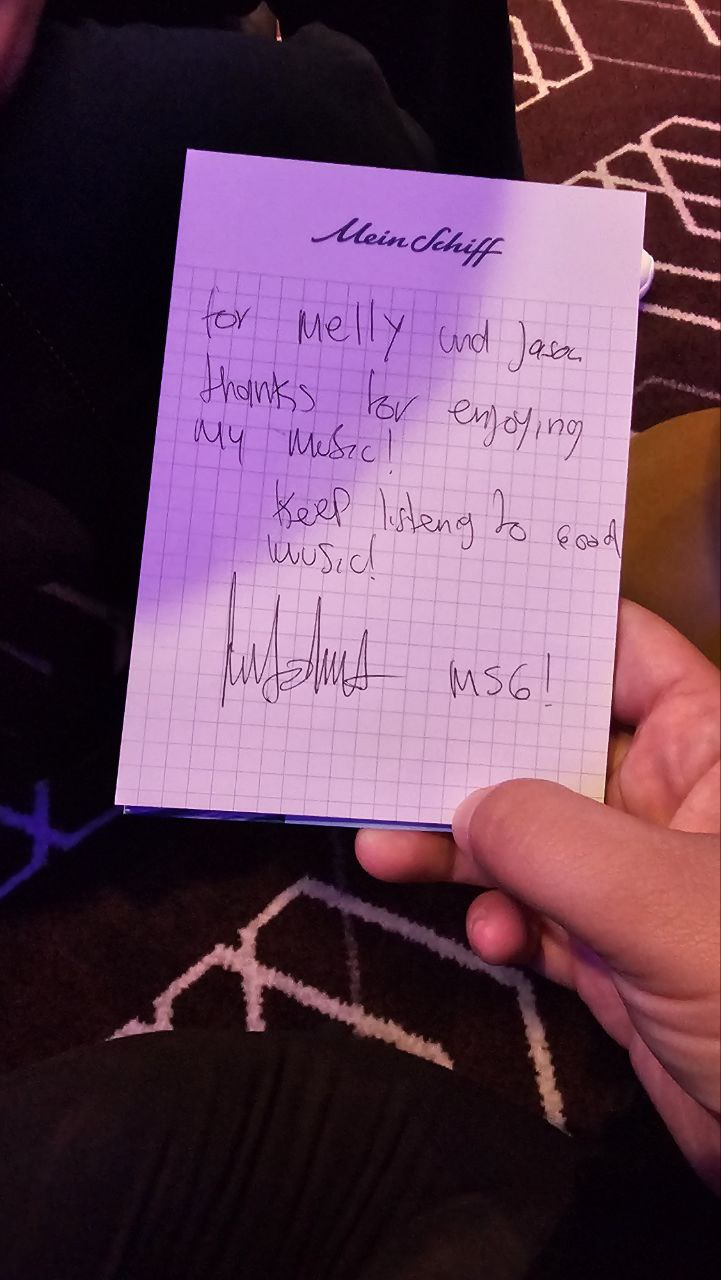 Mein Schiff
for Melly und Jason
thanks for enjoying
my music!
Keep listeng to Good
music!
MS6!